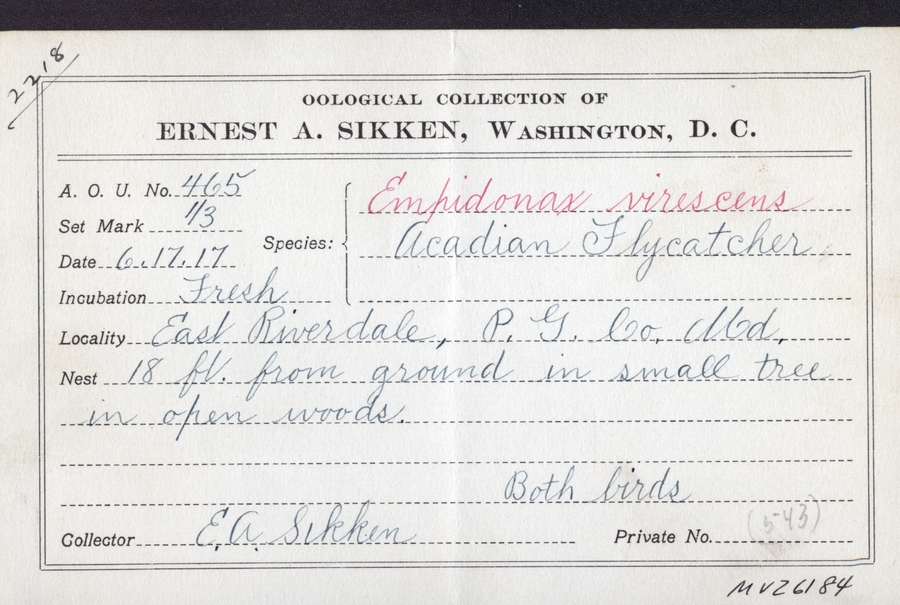 2218
OOLOGICAL COLLECTION OF
ERNEST A. SIKKEN, WASHINGTON, D. C.
A. O. U. No. 465
Set Mark 1/3
Date 6.17.17
Incubation Fresh
Species: Empidonax virescens
Acadian Flycatcher
Locality East Riverdale, P. G. Co. Md,
Nest 18 ft. from ground in small tree
in open woods.
Both birds
Collector E. A. Sikken
Private No. (543)
MVZ6184